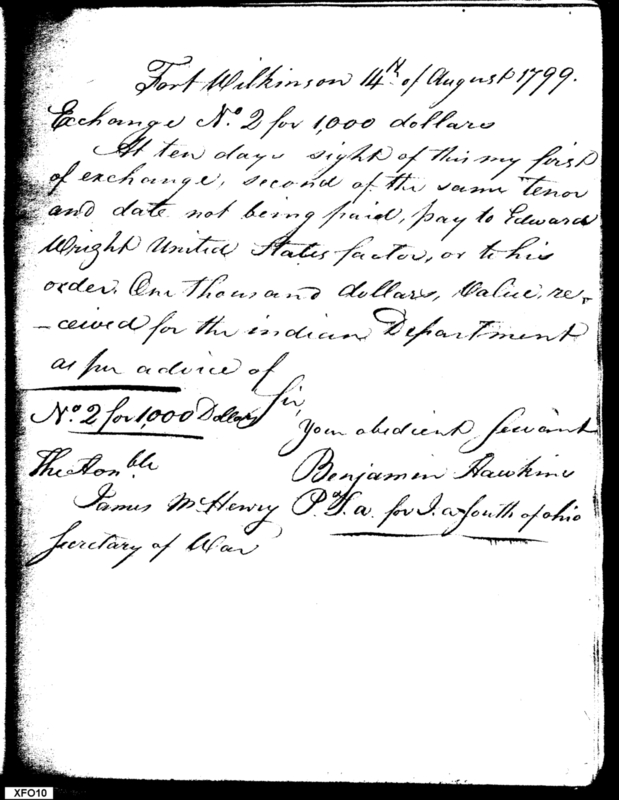 Fort Wilkinson 14th of August 1799.
Exchange No. 2 for 1,000 dollars
At ten days sight of this my first
of exchange, second of the same tenor
and date not being paid, pay to Edward
Wright United States factor, or to his
order. One thousand dollars, Value, re-
-ceived for the indian Department
as per advice of
Sir,
No. 2 for 1,000 Dollars
your obedient Servant
The Honble
Benjamin Hawkins
James McHenry
P. T. a. for I. a South of Ohio
Secretary of War
XFO10